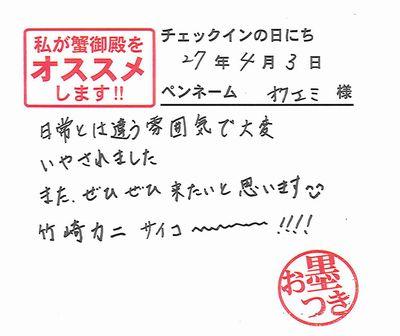 私が蟹御殿を
オススメ
します!!
チェックインの日にち
27年4月3日
ペンネーム オワエミ 様
日常とは違う雰囲気で大変
いやされました
また、ぜひぜひ来たいと思います
竹崎カニ サイコ〜!!!!
お墨つき